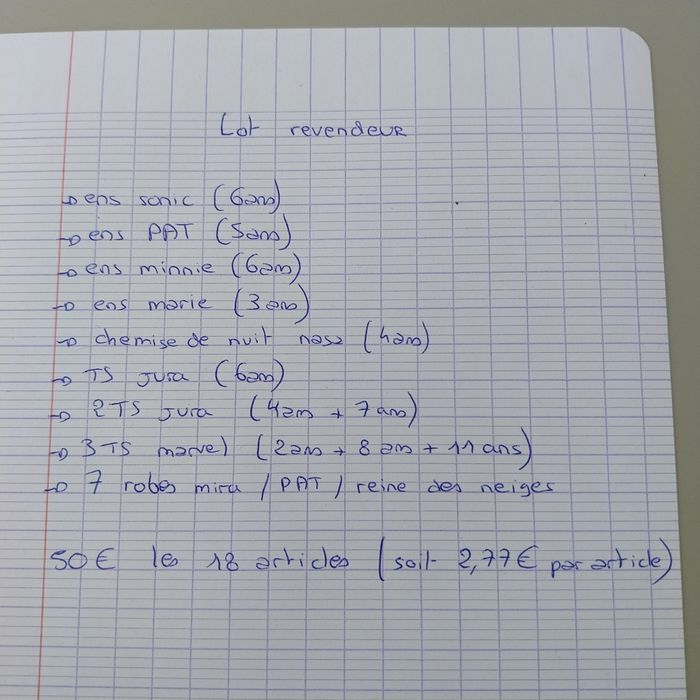 Lot revendeur
→ ens sonic (6ans)
→ ens PAT (5ans)
→ ens minnie (6ans)
→ ens marie (3ans)
→ chemise de nuit nasa (4ans)
→ TS jura (6ans)
→ 2 TS jura (4ans + 7ans)
→ 3 TS marvel (2ans + 8 ans + 11 ans)
→ 7 robes mira / PAT / reine des neiges
50€ les 18 articles (soit 2,77€ par article)